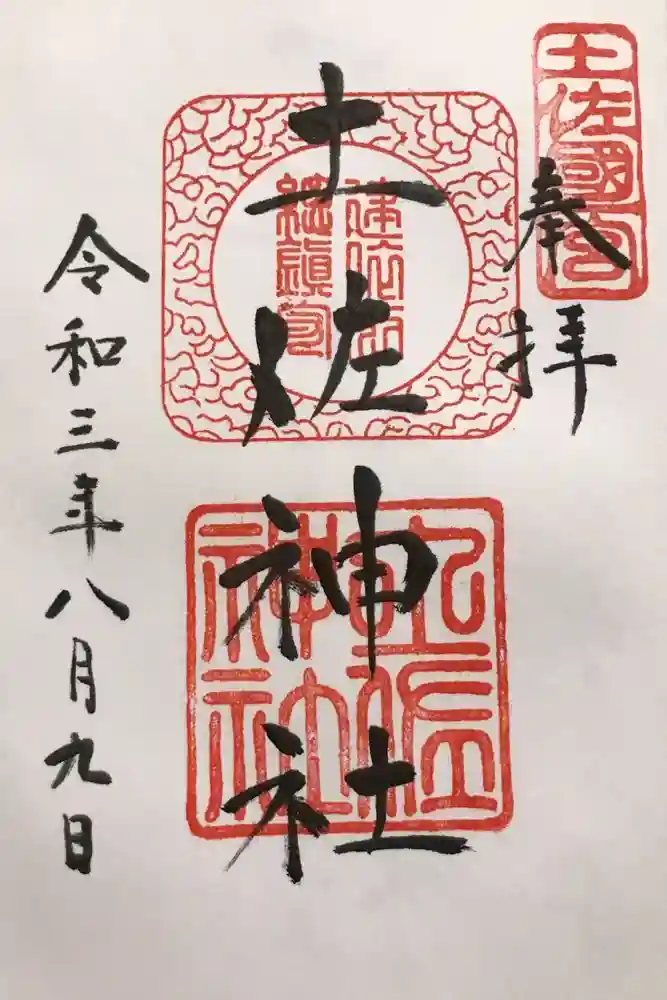 奉拝
土佐國一宮
土佐神社
総鎮守
土佐神社
令和三年八月九日